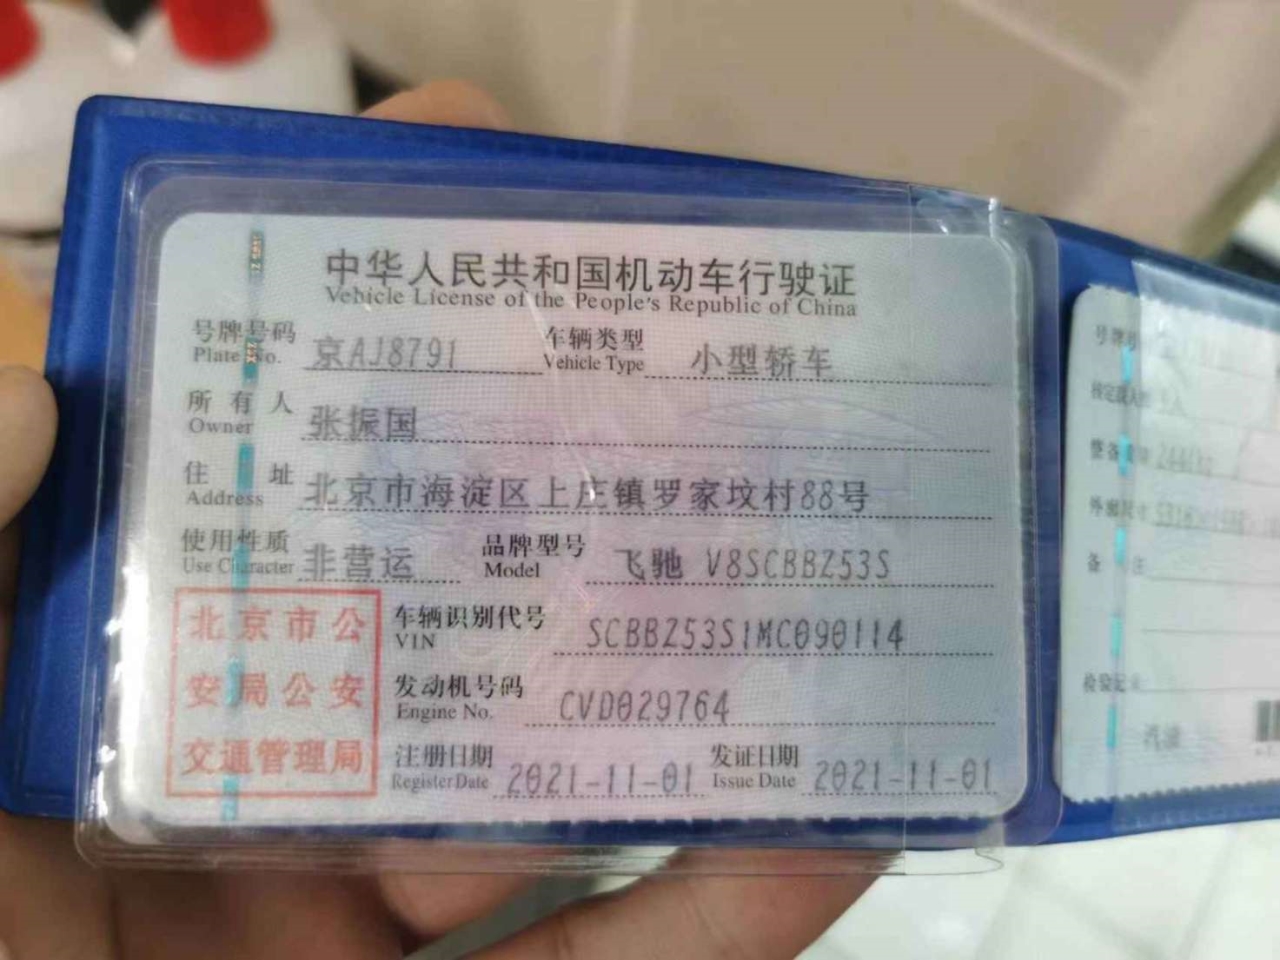 中华人民共和国机动车行驶证
Vehicle License of the People's Republic of China
号牌号码 京AJ8791 车辆类型 小型轿车
Plate No. Vehicle Type
所有人 张振国
Owner
住址 北京市海淀区上庄镇罗家坟村88号
Address
使用性质 非营运 品牌型号 飞驰 V8SCBBZ53S
Use Character Model
北京市公
安局公安
交通管理局
车辆识别代号 SCBBZ53S1MC090114
VIN
发动机号码 CVD029764
Engine No.
注册日期 2021-11-01 发证日期 2021-11-01
Register Date Issue Date
号牌号
核定载人数
整备质量
外廓尺寸
备注
检验记录
汽油